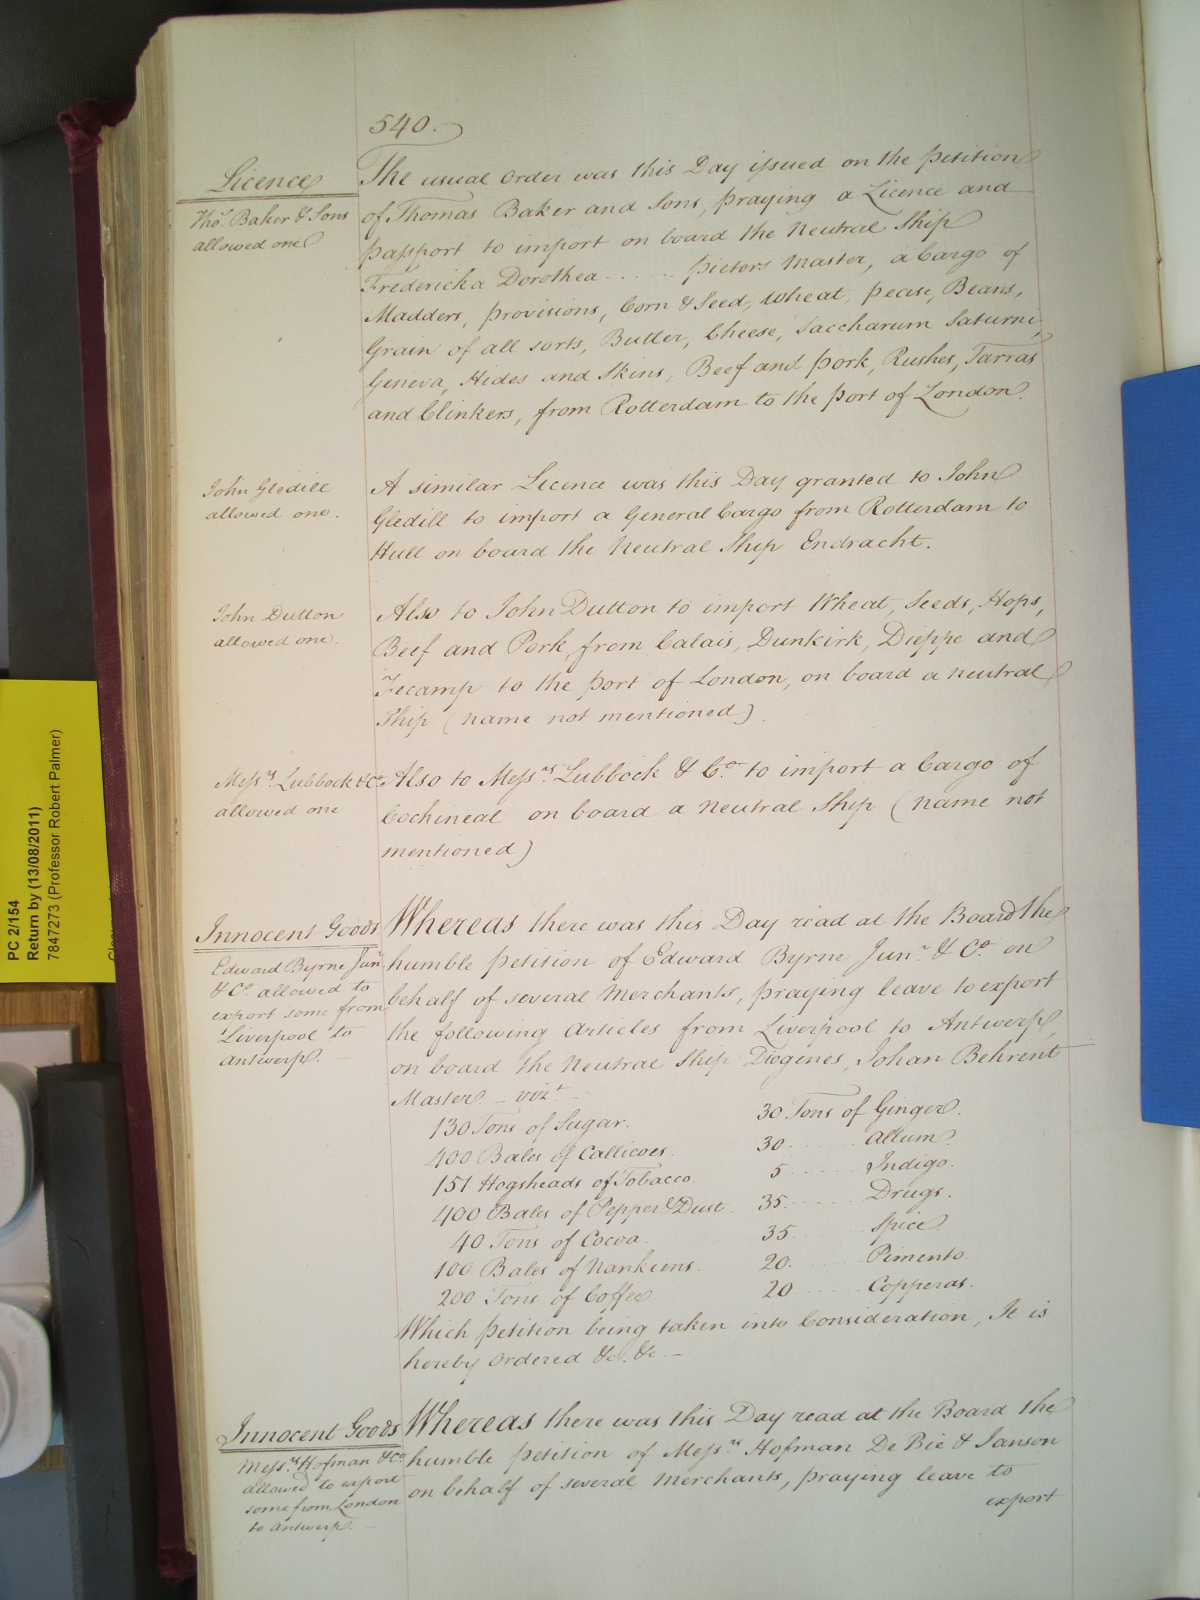 540.
Licence
Thos. Baker & Sons
allowed one
The usual Order was this Day issued on the petition
of Thomas Baker and Sons, praying a Licence and
passport to import on board the Neutral Ship
Fredericka Dorothea ...... pieters Master, a Cargo of
Madders, provisions, Corn & Seed, Wheat, pease, Beans,
Grain of all sorts, Butter, Cheese, Saccharum Saturni,
Geneva, Hides and Skins, Beef and pork, Rushes, Tarras
and Clinkers, from Rotterdam to the port of London.
John Gledill
allowed one.
A similar Licence was this Day granted to John
Gledill to import a General Cargo from Rotterdam to
Hull on board the Neutral Ship Endracht.
John Dutton
allowed one.
Also to John Dutton to import Wheat, Seeds, Hops,
Beef and Pork, from Calais, Dunkirk, Dieppe and
Fecamp to the port of London, on board a neutral
Ship (name not mentioned)
Messrs. Lubbock & Co.
allowed one
Also to Messrs. Lubbock & Co. to import a Cargo of
Cochineal on board a Neutral Ship (name not
mentioned)
Innocent Goods
Edward Byrne Junr.
& Co. allowed to
export some from
Liverpool to
Antwerp. —
Whereas there was this Day read at the Board the
humble petition of Edward Byrne Junr. & Co. on
behalf of several Merchants, praying leave to export
the following Articles from Liverpool to Antwerp,
on board the Neutral Ship Diogenes, Johan Behrent
Master. — vizt. —
130 Tons of Sugar.
400 Bales of Callicoes.
151 Hogsheads of Tobacco.
400 Bales of Pepper & Dust.
40 Tons of Cocoa.
100 Bales of Nankeens.
200 Tons of Coffee
30 Tons of Ginger.
30 ...... Allum.
5 ...... Indigo.
35 ...... Drugs.
35 ...... Spice.
20 ...... Pimento.
20 ...... Copperas.
Which petition being taken into Consideration, It is
hereby Ordered &c. &c. —
Innocent Goods
Messrs. Hofman & Co.
allowed to export
some from London
to Antwerp. —
Whereas there was this Day read at the Board the
humble petition of Messrs. Hofman De Bie & Janson
on behalf of several Merchants, praying leave to
export
PC 2/154
Return by (13/08/2011)
7847273 (Professor Robert Palmer)